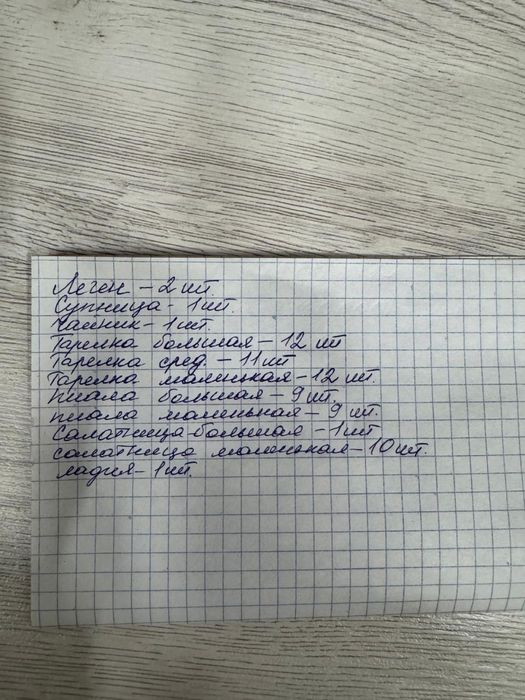 Леген - 2 шт
Супница - 1 шт.
Чайник - 1 шт.
Тарелка большая - 12 шт
Тарелка сред. - 11 шт
Тарелка маленькая - 12 шт.
Пиала большая - 9 шт.
пиала маленькая - 9 шт.
Салатница большая - 1 шт
салатница маленькая - 10 шт.
ладия - 1 шт.